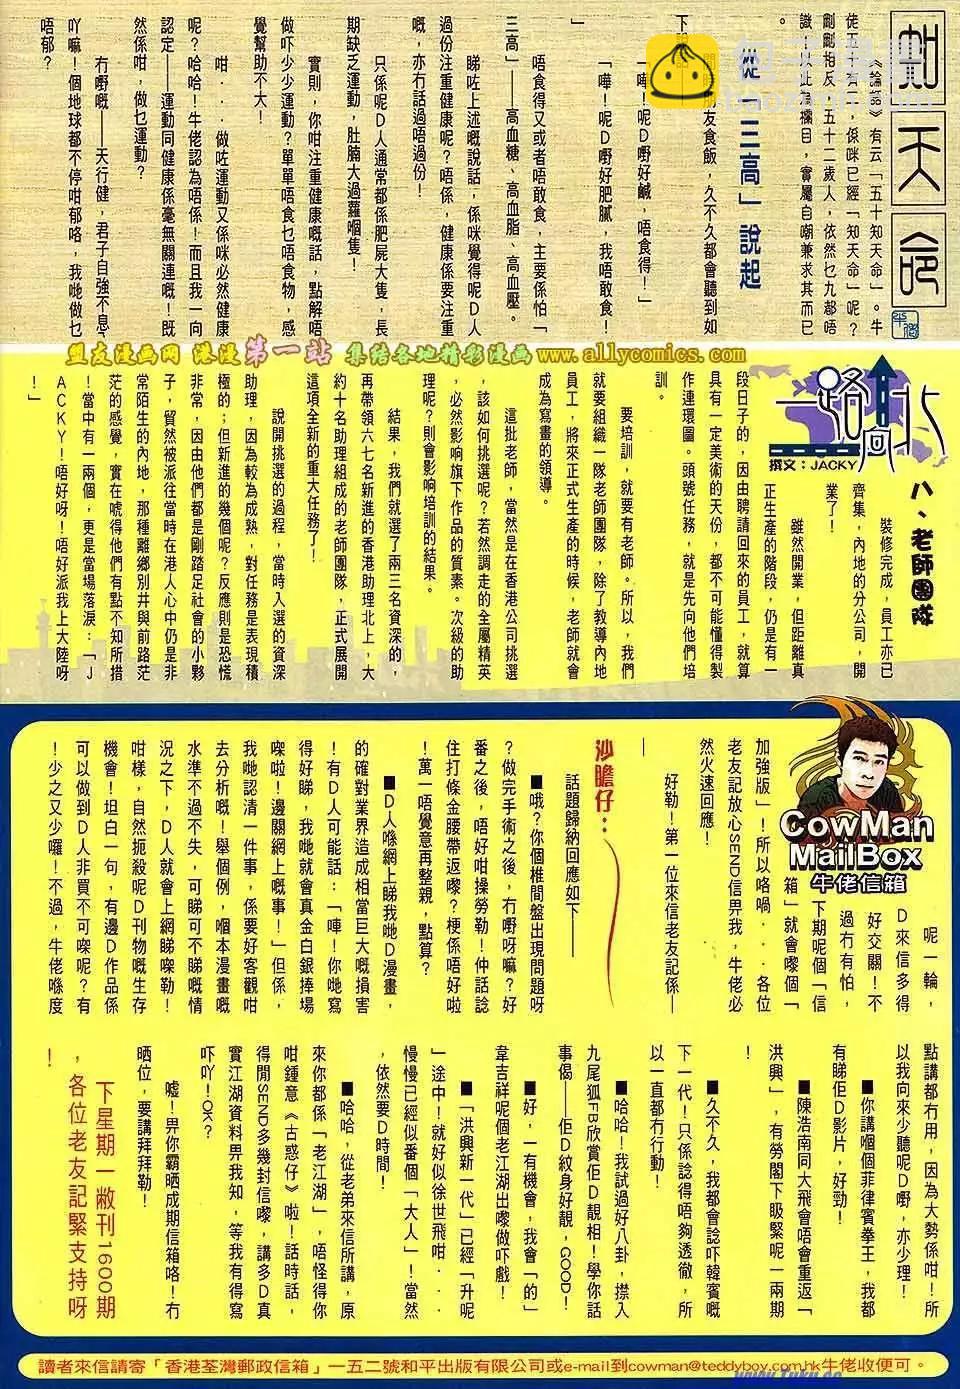 知天命
牛佬
《論語》有云「五十知天命」。牛
徒五十有二，係咪已經「知天命」呢？
剛剛相反，五十二歲人，依然乜九都唔
識，以此為欄目，實屬自嘲兼求其而已
。
從「三高」說起
間時朋友食飯，久不久都會聽到如
下說話：
「嘩！呢D嘢好鹹，唔食得！」
「嘩！呢D嘢好肥膩，我唔敢食！
」
唔食得又或者唔敢食，主要係怕「
三高」——高血糖、高血脂、高血壓。
睇咗上述嘅說話，係咪覺得呢D人
過份注重健康呢？唔係，健康係要注重
嘅，亦冇話過唔過份！
只係呢D人通常都係肥屍大隻，長
期缺乏運動，肚腩大過籮嗰隻！
實則，你咁注重健康嘅話，點解唔
做吓少少運動？單單唔食乜唔食物，感
覺幫助不大！
咁．．做咗運動又係咪必然健康
呢？哈哈！牛佬認為唔係！而且我一向
認定——運動同健康係毫無關連嘅！既
然係咁，做乜運動？
冇嘢嘅——天行健，君子自強不息
吖嘛！個地球都不停咁郁咯，我哋做乜
唔郁？
盟友漫画网 港漫第一站 集結各地精彩漫画 www.allycomics.com
一路向北
撰文：JACKY
八、老師團隊
裝修完成，員工亦已
齊集，內地的分公司，開
業了！
雖然開業，但距離真
正生產的階段，仍是有一
段日子的，因由聘請回來的員工，就算
具有一定美術的天份，都不可能懂得製
作連環圖。頭號任務，就是先向他們培
訓。
要培訓，就要有老師。所以，我們
就要組織一隊老師團隊，除了教導內地
員工，將來正式生產的時候，老師就會
成為寫畫的領導。
這批老師，當然是在香港公司挑選
，該如何挑選呢？若然調走的全屬精英
，必然影响旗下作品的質素。次級的助
理呢？則會影响培訓的結果。
結果，我們就選了兩三名資深的，
再帶領六七名新進的香港助理北上，大
約十名助理組成的老師團隊，正式展開
這項全新的重大任務了！
說開挑選的過程，當時入選的資深
助理，因為較為成熟，對任務是表現積
極的；但新進的幾個呢？反應則是恐慌
非常，因由他們都是剛踏足社會的小夥
子，貿然被派往當時在港人心中仍是非
常陌生的內地，那種離鄉別井與前路茫
茫的感覺，實在唬得他們有點不知所措
！當中有一兩個，更是當場落淚：「J
ACKY！唔好呀！唔好派我上大陸呀
！」
CowMan
MailBox
牛佬信箱
呢一輪，
D來信多得
好交關！不
過冇有怕，
下期呢個「信
箱」就會嚟個「
加強版」！所以咯喎．．各位
老友記放心SEND信畀我，牛佬必
然火速回應！
好勒！第一位來信老友記係—
—
沙膽仔：
話題歸納回應如下——
■哦？你個椎間盤出現問題呀
？做完手術之後，冇嘢呀嘛？好
番之後，唔好咁操勞勒！仲話諗
住打條金腰帶返嚟？梗係唔好啦
！萬一唔覺意再整親，點算？
■D人喺網上睇我哋D漫畫，
的確對業界造成相當巨大嘅損害
！有D人可能話：「唓！你哋寫
得好睇，我哋就會真金白銀捧場
㗎啦！邊關網上嘅事！」但係，
我哋認清一件事，係要好客觀咁
去分析嘅！舉個例，嗰本漫畫嘅
水準不過不失，可睇可不睇嘅情
況之下，D人就會上網睇㗎勒！
咁樣，自然扼殺呢D刊物嘅生存
機會！坦白一句，有邊D作品係
可以做到D人非買不可㗎呢？有
！少之又少囉！不過，牛佬喺度
點講都冇用，因為大勢係咁！所
以我向來少聽呢D嘢，亦少理！
■你講嗰個菲律賓拳王，我都
有睇佢D影片，好勁！
■陳浩南同大飛會唔會重返「
洪興」，有勞閣下昅緊呢一兩期
！
■久不久，我都會諗吓韓賓嘅
下一代！只係諗得唔夠透徹，所
以一直都冇行動！
■哈哈！我試過好八卦，㩒入
九尾狐FB欣賞佢D靚相！學你話
事偈——佢D紋身好靚，GOOD！
■好，一有機會，我會「的」
韋吉祥呢個老江湖出嚟做吓戲！
■「洪興新一代」已經「升呢
」途中！就好似徐世飛咁．．
慢慢已經似番個「大人」！當然
，依然要D時間！
■哈哈，從老弟來信所講，原
來你都係「老江湖」，唔怪得你
咁鍾意《古惑仔》啦！話時話，
得閒SEND多幾封信嚟，講多D真
實江湖資料畀我知，等我有得寫
吓吖！OK？
噓！畀你霸晒成期信箱咯！冇
晒位，要講拜拜勒！
下星期一敝刊1600期
，各位老友記緊支持呀
！
讀者來信請寄「香港荃灣郵政信箱」一五二號和平出版有限公司或e-mail到cowman@teddyboy.com.hk牛佬收便可。